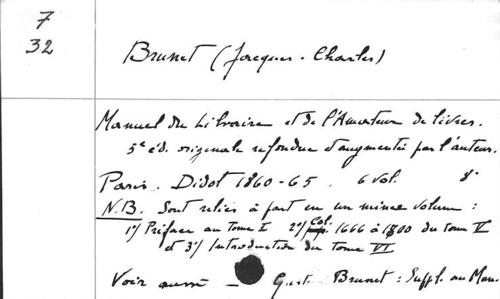 7
32
Brunet (Jacques-Charles)
Manuel du Libraire et de l'Amateur de livres.
5e éd. originale refondue et augmentée par l'auteur.
Paris. Didot 1860-65. 6 vol. 8°
N.B. Sont reliés à part en un mince volume :
1°/ Préface au tome I 2°/ Col. 1666 à 1800 du tome V
et 3°/ Introduction du tome VI
Voir aussi — Gust. Brunet : Suppl. au Man.